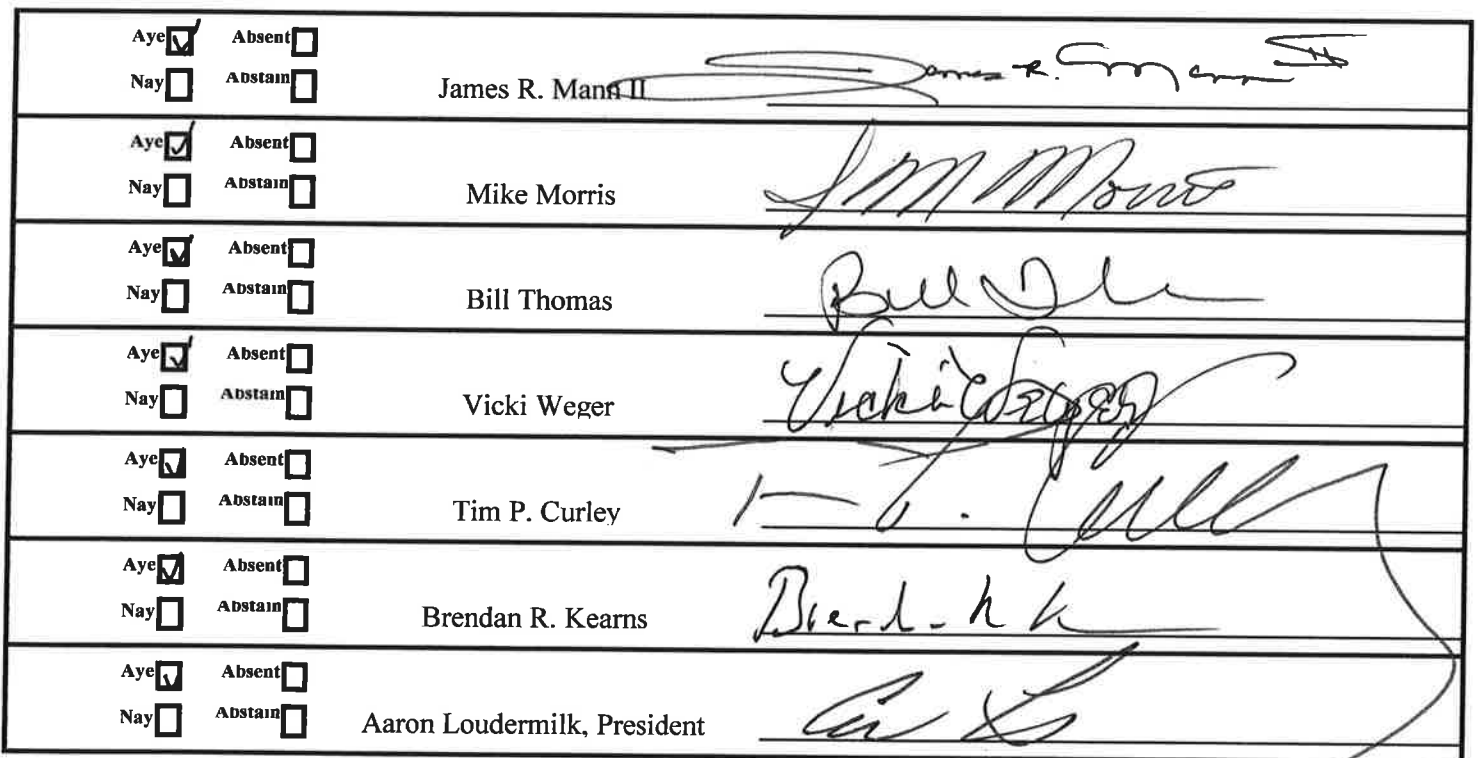 Aye Absent
James R. Mann II
Nay Abstain James R. Mann II
Aye Absent
Nay Abstain Mike Morris
Aye Absent
Nay Abstain Bill Thomas Bill
Aye Absent
Nay Abstain Vicki Weger Vicki Weger
Aye Absent
Nay Abstain Tim P. Curley
Aye Absent
Nay Abstain Brendan R. Kearns
Aye Absent
Nay Abstain Aaron Loudermilk, President